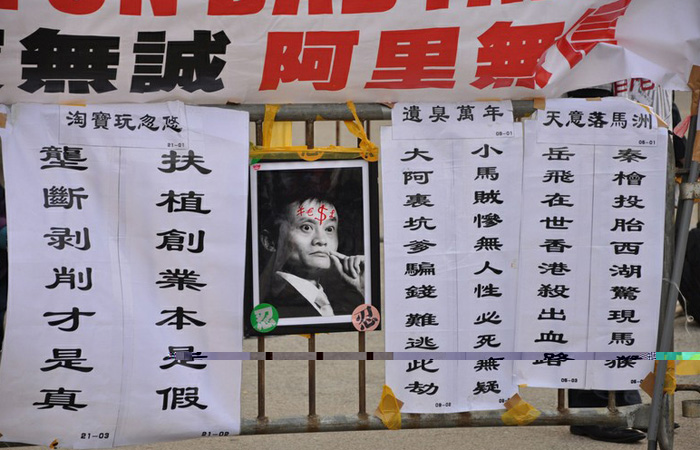 無誠 阿里無
淘寶玩忽悠
21-01
扶植創業本是假
21-02
壟斷剝削才是真
21-03
€$
忍
忍
遺臭萬年
小馬賊慘無人性必死無疑
大阿裏坑爹騙錢難逃此劫
天意落馬洲
秦檜投胎西湖驚現馬猴
岳飛在世香港殺出血路